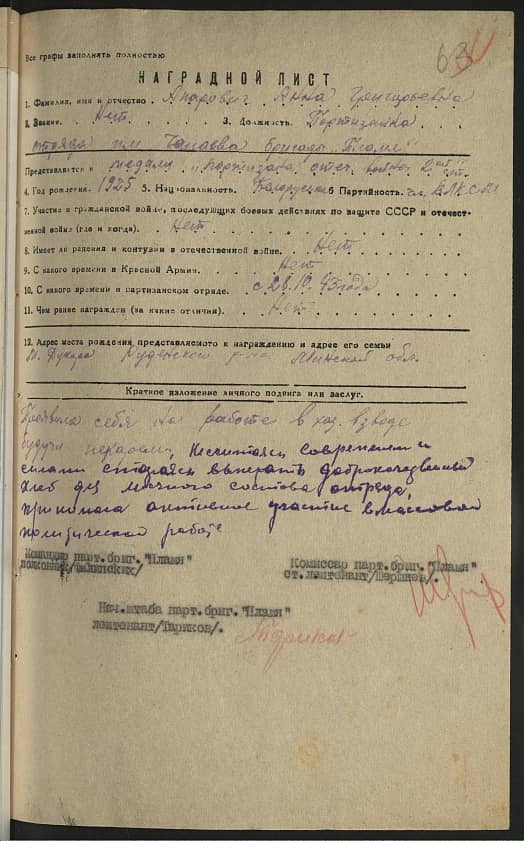 63
Все графы заполнять полностью
НАГРАДНОЙ ЛИСТ
1. Фамилия, имя и отчество. Апарович Анна Григорьевна
2. Звание. Нет 3. Должность. Партизанка
отряда им Чапаева бригады "Пламя"
Представляется к медали "партизана отеч. войны 2 ст
4. Год рождения. 1925 5. Национальность. Белоруска 6 Партийность. чл. ВЛКСМ
7. Участие в гражданской войне, последующих боевых действиях по защите СССР и отечест-
венной войне (где и когда). Нет
8. Имеет ли ранения и контузии в отечественной войне. Нет
9. С какого времени в Красной Армии. Нет
10. С какого времени в партизанском отряде. с 28.10.43 года
11. Чем ранее награжден (за какие отличия). Нет
12. Адрес места рождения представляемого к награждению и адрес его семьи
м. Дукора Руденский р-на Минской обл.
Краткое изложение личного подвига или заслуг.
Проявила себя на работе в хоз. взводе
будучи пекарем, несчитаясь современем и
силами старалась выпекать доброкачественный
хлеб для личного состава отряда,
принимала активное участие в массовой
политической работе
Командир парт.бриг."Пламя"
полковник/Филинских/
Комиссар парт.бриг."Пламя"
ст.лейтенант/Шершнев/.
Нач.штаба парт.бриг."Пламя"
лейтенант/Тариков/.